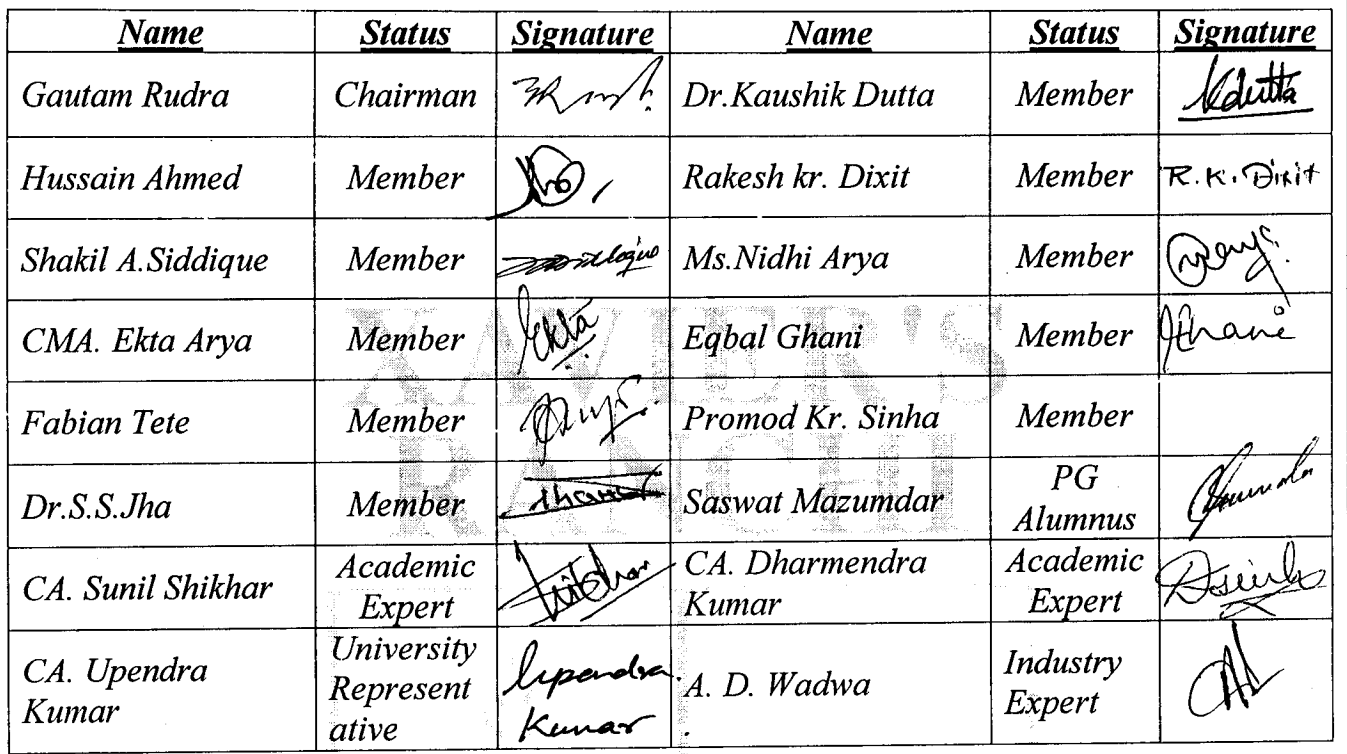 Name Status Signature Name Status Signature
Gautam Rudra Chairman Dr.Kaushik Dutta Member Kdutta
Hussain Ahmed Member Rakesh kr. Dixit Member R.K. Dixit
Shakil A.Siddique Member Ms.Nidhi Arya Member
CMA. Ekta Arya Member Ekta Eqbal Ghani Member
Fabian Tete Member Promod Kr. Sinha Member
Dr.S.S.Jha Member Saswat Mazumdar PG
Alumnus
CA. Sunil Shikhar Academic
Expert
CA. Dharmendra
Kumar
Academic
Expert
CA. Upendra
Kumar
University
Represent
ative
Upendra
Kumar
A. D. Wadwa
Industry
Expert
XAVIER'S
RANCHI